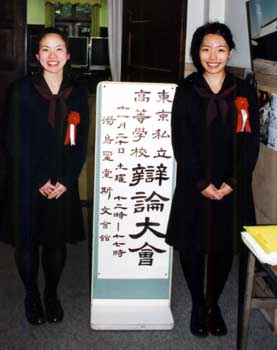 東京私立
高等學校
辯論大會
十一月二十日 土曜 十二時─十七時
湯島聖堂斯文會館